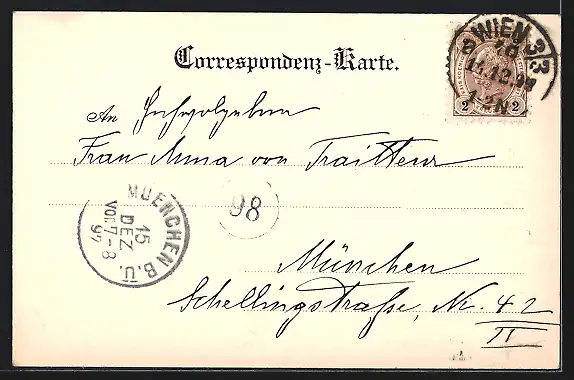 Correspondenz-Karte.
WIEN 3/3
2 2
An Hochwolgeboren
Frau Anna von Traitteur
98
MUENCHEN B.Ü.
15
DEZ
VOR. 7-8
97
München
Schellingstraße, Nr. 42
II